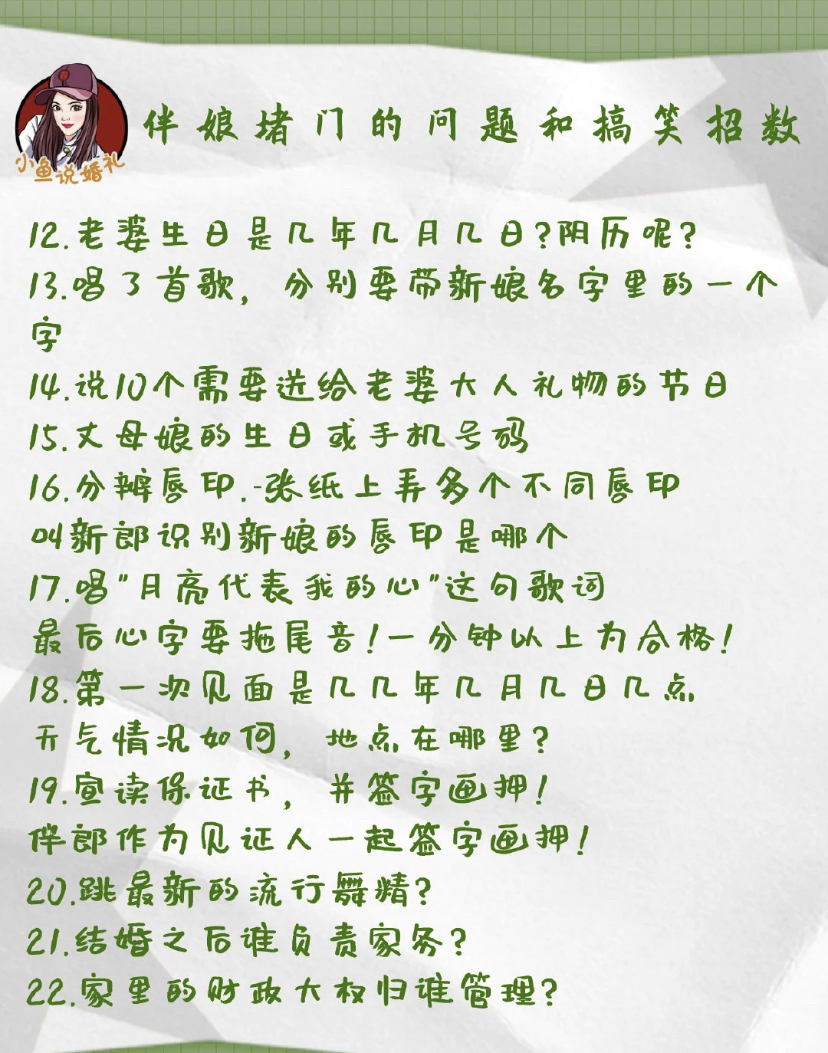 伴娘堵门的问题和搞笑招数
小鱼说婚礼
12.老婆生日是几年几月几日?阴历呢?
13.唱了首歌，分别要带新娘名字里的一个
字
14.说10个需要送给老婆大人礼物的节日
15.丈母娘的生日或手机号码
16.分辨唇印.-张纸上弄多个不同唇印
叫新郎识别新娘的唇印是哪个
17.唱"月亮代表我的心"这句歌词
最后心字要拖尾音!一分钟以上为合格!
18.第一次见面是几几年几月几日几点
天气情况如何，地点在哪里?
19.宣读保证书，并签字画押!
伴郎作为见证人一起签字画押!
20.跳最新的流行舞精?
21.结婚之后谁负责家务?
22.家里的财政大权归谁管理?